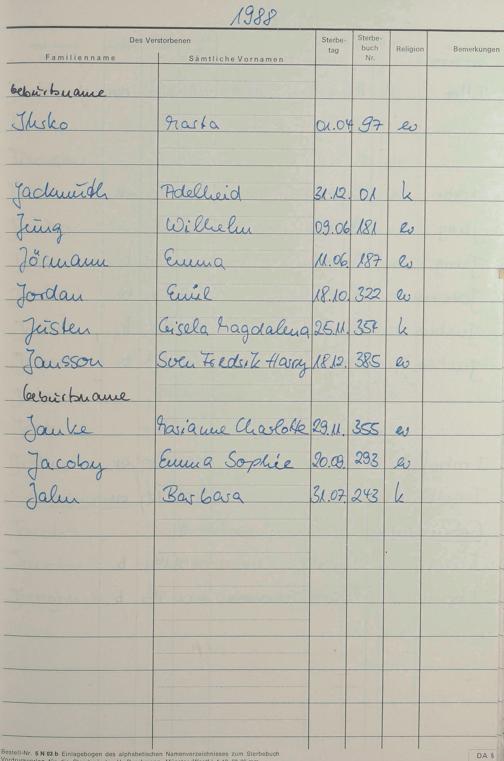 1988
Des Verstorbenen
Familienname Sämtliche Vornamen Sterbe-tag Sterbe-buch Nr. Religion Bemerkungen
Geburtsname
Ihsko Marta 01.04 97 ev
Jackmuth Adelheid 31.12. 01 k
Jung Wilhelm 09.06 181 ev
Jörmann Emma 11.06. 187 ev
Jordan Emil 18.10. 322 ev
Justen Gisela Magdalena 25.11. 357 k
Jansson Sven Fredrik Harry 18.12. 385 ev
Geburtsname
Janke Marianne Charlotte 29.11. 355 ev
Jacoby Emma Sophie 20.09. 293 ev
Jahn Barbara 31.07. 243 k
Bestell-Nr. S N 02 b Einlagebogen des alphabetischen Namenverzeichnisses zum Sterbebuch
DA 5